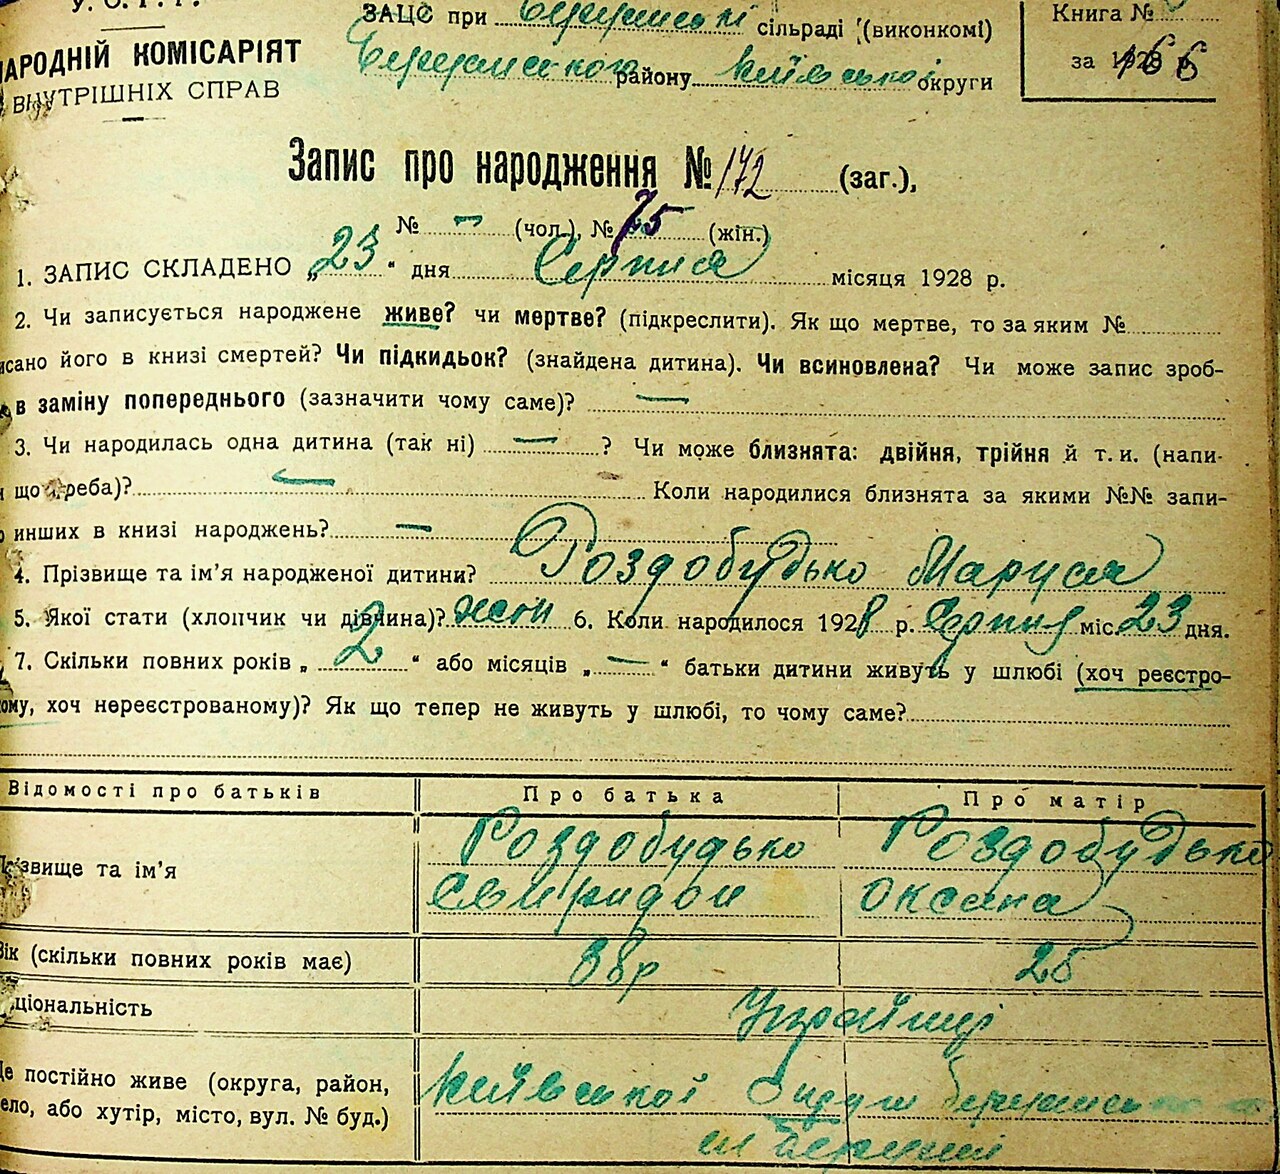 У. С. Р. Р.
НАРОДНІЙ КОМІСАРІЯТ
ВНУТРІШНІХ СПРАВ
ЗАЦС при сільраді (виконкомі)
району Київської округи
Книга №
за 1928 р. 166
Запис про народження № 172 (заг.),
№ — (чол.), № 75 (жін.)
1. ЗАПИС СКЛАДЕНО „23“ дня Серпня місяця 1928 р.
2. Чи записується народжене живе? чи мертве? (підкреслити). Як що мертве, то за яким №
исано його в книзі смертей? Чи підкидьок? (знайдена дитина). Чи всиновлена? Чи може запис зроб-
в заміну попереднього (зазначити чому саме)? —
3. Чи народилась одна дитина (так ні) — ? Чи може близнята: двійня, трійня й т. и. (напи-
що треба)? — Коли народилися близнята за якими №№ запи-
инших в книзі народжень? —
4. Прізвище та ім’я народженої дитини? Роздобудько Маруся
5. Якої стати (хлопчик чи дівчина)? жсон 6. Коли народилося 1928 р. Серпня міс. 23 дня.
7. Скільки повних років „2“ або місяців „—“ батьки дитини живуть у шлюбі (хоч реєстро-
ому, хоч нереєстрованому)? Як що тепер не живуть у шлюбі, то чому саме?
Відомості про батьків Про батька Про матір
Прізвище та ім’я Роздобудько Роздобудько
Свиридон Оксана
Вік (скільки повних років має) 38р 25
Національність Українці
Де постійно живе (округа, район, Київської
село, або хутір, місто, вул. № буд.)